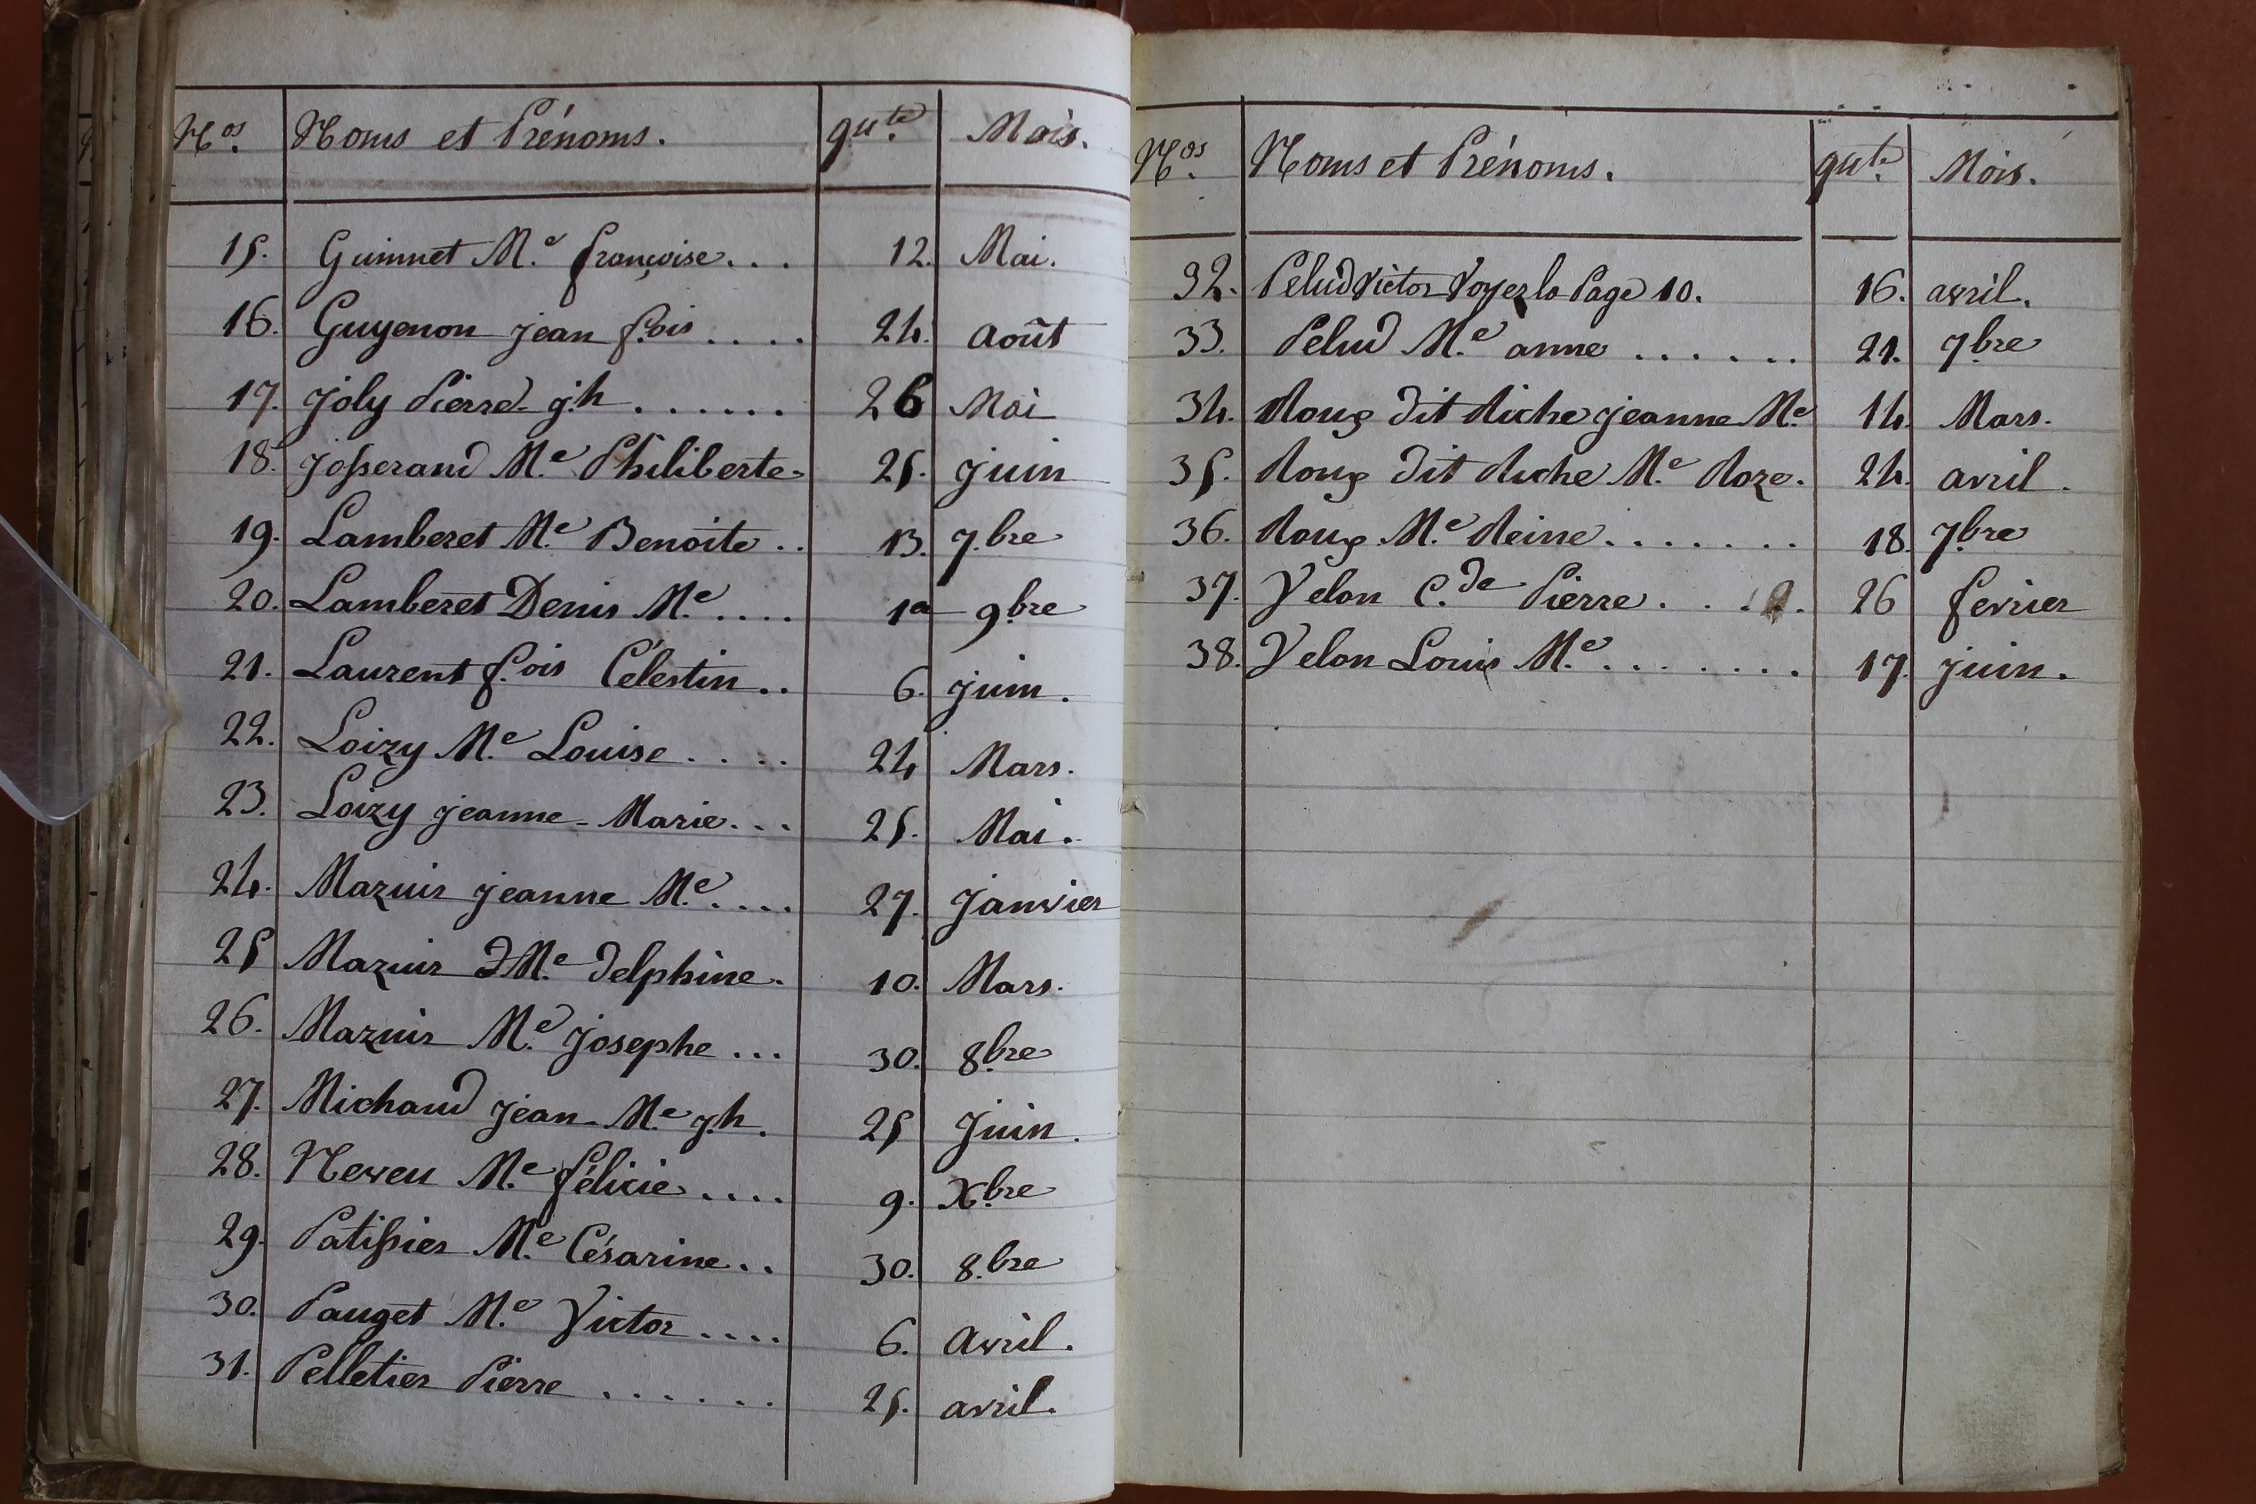 Nos. Noms et Prénoms. qute. Mois.
15. Guinnet Me. françoise... 12. Mai.
16. Guyenon jean f.ois .... 24. Août
17. Joly Pierre g.h ...... 26 Mai
18. Josserand Me. Philiberte. 25. juin
19. Lamberet Me. Benoite .. 13. 7.bre
20. Lamberet Denis Me. .... 1er 9.bre
21. Laurent f.ois Célestin .. 6. juin.
22. Loizy Me. Louise .... 24 Mars.
23. Loizy jeanne-Marie... 25. Mai.
24. Mazuir jeanne Me. .... 27. Janvier
25 Mazuir Me. Delphine. 10. Mars.
26. Mazuir Me. Josephe ... 30. 8.bre
27. Michaud Jean-Me. g.h. 25 Juin.
28. Neveu Me. félicie .... 9. X.bre
29. Patissier Me. Césarine .. 30. 8.bre
30. Pauget Me. Victor .... 6. Avril.
31. Pelletier Pierre ...... 25. avril.
Nos. Noms et Prénoms. qute. Mois.
32. Pelud Victor Voyez la Page 10. 16. avril.
33. Pelud Me. anne ...... 21. 7.bre
34. Roux dit Riche jeanne Me. 14. Mars.
35. Roux dit Riche Me. Roze. 24. avril.
36. Roux Me. Reine ....... 18. 7.bre
37. Velon C.de Pierre .... 26 fevrier
38. Velon Louis Me. ....... 17. juin.